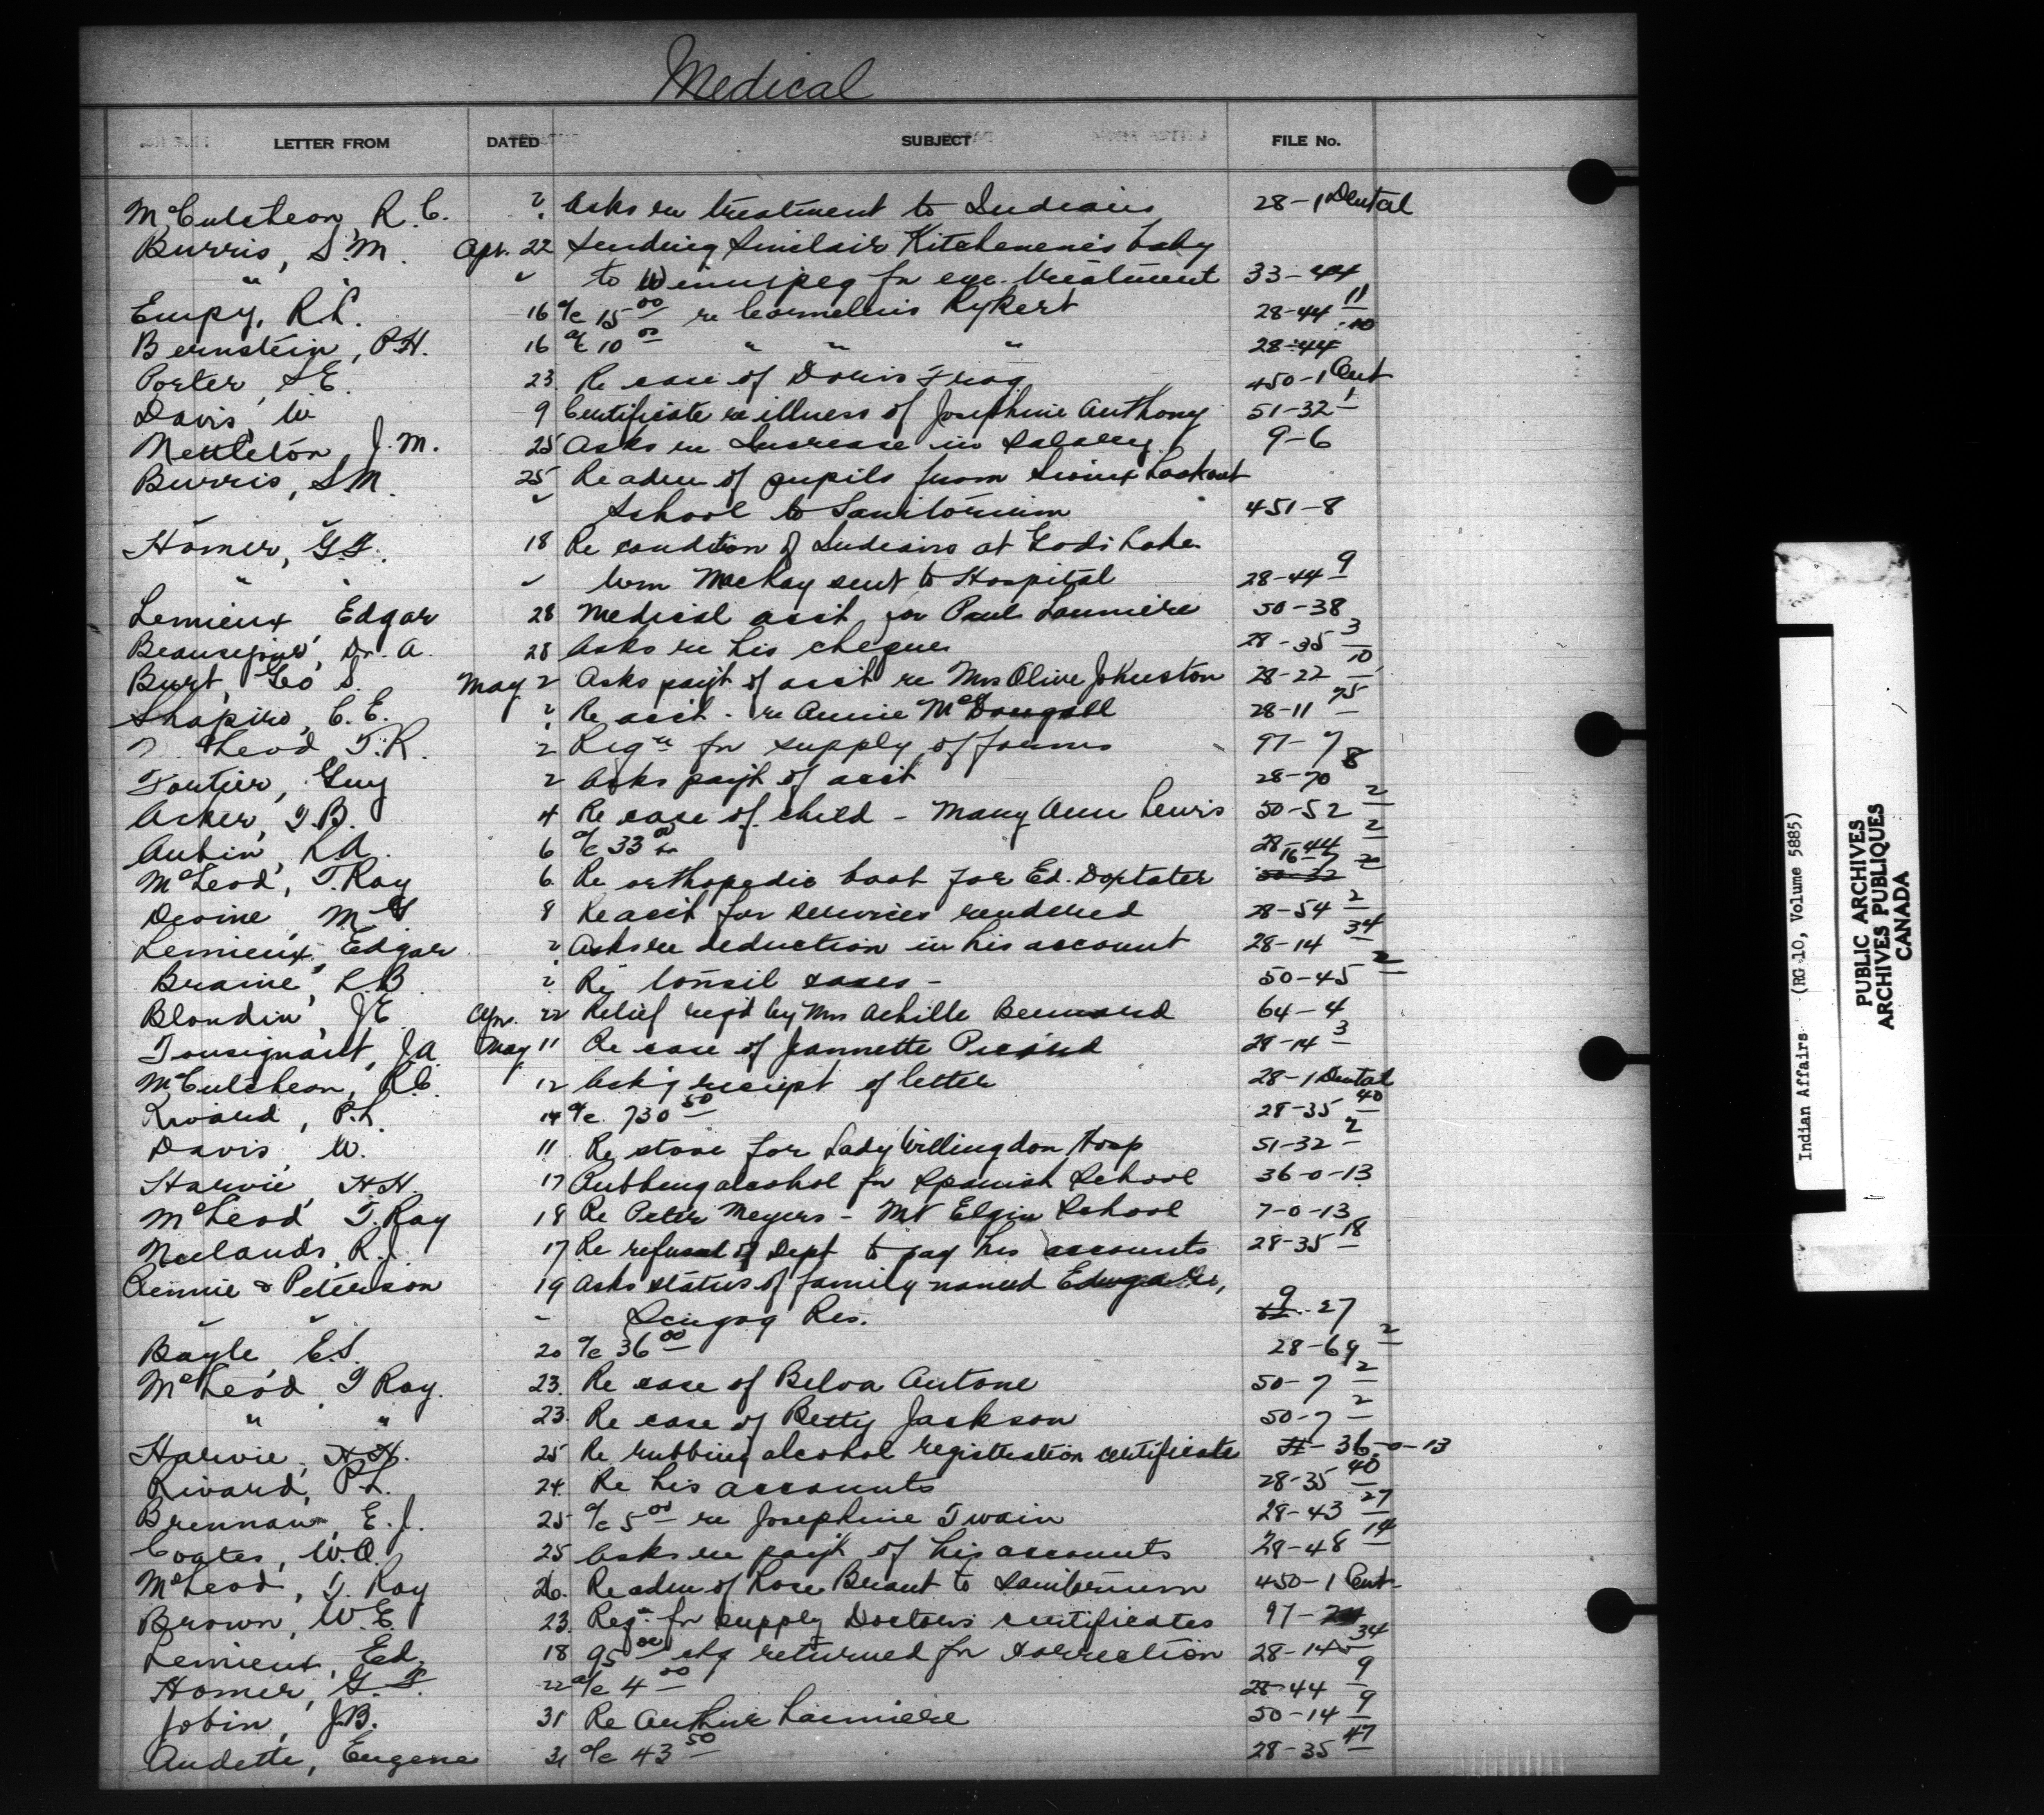 Medical
LETTER FROM DATED SUBJECT FILE No.
McCutcheon, R.C. ? Asks re treatment to Indians 28-1 Dental
Burris, S.M. Apr. 22 Sending Sinclair Kitchenene's baby
" " " to Winnipeg for eye treatment 33-44
Empy, R.L. 16 a/c 15 00 re Cornelius Rykert 28-44 11
Bernstein, P.H. 16 a/c 10 00 " " " 28-44 10
Porter, S.E. 23 Re case of Doris Frog 450-1 Cent
Davis, W 9 Certificate re illness of Josephine Anthony 51-32 1
Nettleton, J.M. 25 Asks re Increase in Salary 9-6
Burris, S.M. 25 Re adm of pupils from Sioux Lookout
" " " School to Sanitorium 451-8
Homer, G.F. 18 Re condition of Indians at Gods Lake
" " " Wm MacKay sent to Hospital 28-44 9
Lemieux Edgar 28 Medical acct for Paul 50-38
Beausejour, Dr. A. 28 Asks re his cheques 28-35 3
Burt, Geo S. May 2 Asks payt of acct re Mrs Olive Johnston 28-22 10
Shapiro, C.E. ? Re acct - re Annie McDougall 28-11 75
McLeod T.R. 2 Reqn for supply of forms 97-7
Fortier, Guy 2 Asks payt of acct 28-70 8
Acker, T.B. 4 Re case of child - Mary Ann Lewis 50-52 2
Aubin, L.A. 6 a/c 33 00 28-44 2
McLeod, T. Ray 6 Re orthopedic boot for Ed. Doxtater 16-7 20
Devine, M.G. 8 Re acct for services rendered 28-54 2
Lemieux, Edgar ? Asks re deduction in his account 28-14 34
Braine, L.B. ? Re tonsil cases - 50-45 2
Blondin, J.E. Apr. 22 Relief reqd by Mrs Achille Bernard 64-4
Tousignant, J.A. May 11 Re case of Jeannette Picard 28-14 3
McCutcheon, R.C. 12 Ack'g receipt of letter 28-1 Dental
Rivard, P.L. 14 a/c 730 50 28-35 40
Davis, W. 11 Re stove for Lady Willingdon Hosp 51-32 2
Harvie, H.H. 17 Rubbing alcohol for Spanish School 36-0-13
McLeod T. Ray 18 Re Peter Meyers - Mt Elgin School 7-0-13
Neilands, R.J. 17 Re refusal of Dept to pay his accounts 28-35 18
Rennie & Peterson 19 Asks status of family named
" " " Scugog Res. 9-27
Bayle, E.S. 20 a/c 36 00 28-69 2
McLeod, T Ray. 23. Re case of Belva Antone 50-7 2
" " 23. Re case of Betty Jackson 50-7 2
Harvie, H.H. 25 Re rubbing alcohol registration certificate 36-0-13
Rivard, P.L. 24. Re his accounts 28-35 40
Brennan, E.J. 25 a/c 5 00 re Josephine Twain 28-43 27
Coates, W.A. 25 Asks re payt of his accounts 28-48 14
McLeod, T. Ray 26. Re adm of Rose Brant to Sanitorium 450-1 Cent
Brown, W.E. 23. Reqn for supply Doctors certificates 97-
Lemieux, Ed. 18 95 00 chq returned for correction 28-14 34
Homer, G.F. 22 a/c 4 00 28-44 9
Jobin, J.B. 31 Re Arthur 50-14 9
Audette, Eugene 31 a/c 43 50 28-35 47
Indian Affairs (RG 10, Volume 5885)
PUBLIC ARCHIVES
ARCHIVES PUBLIQUES
CANADA